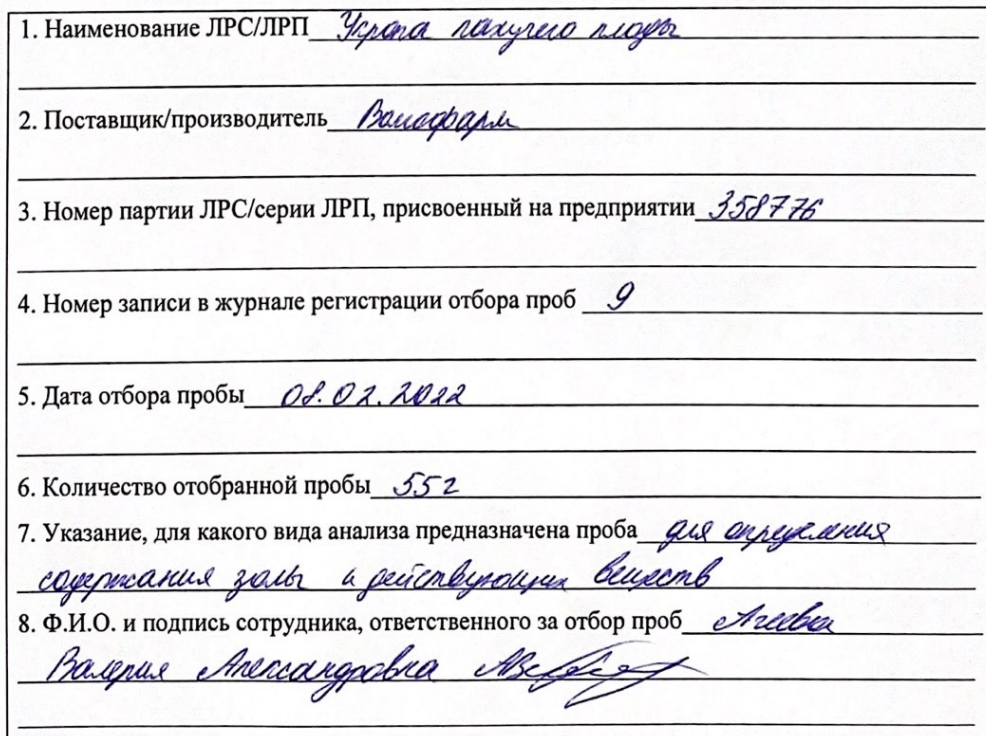 1. Наименование ЛРС/ЛРП Укропа пахучего плоды
2. Поставщик/производитель
3. Номер партии ЛРС/серии ЛРП, присвоенный на предприятии 358776
4. Номер записи в журнале регистрации отбора проб 9
5. Дата отбора пробы 08.02.2022
6. Количество отобранной пробы 55 г
7. Указание, для какого вида анализа предназначена проба для определения
содержания золы и действующих веществ
8. Ф.И.О. и подпись сотрудника, ответственного за отбор проб Агеева
Валерия Александровна